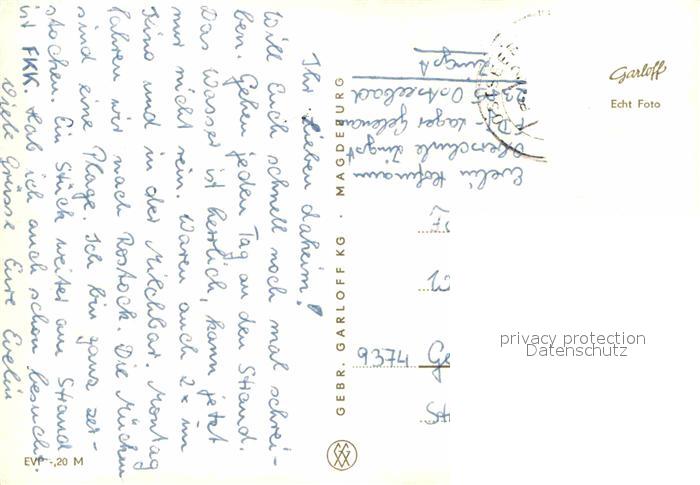 Ihr Lieben daheim!
Will Euch schnell noch mal schrei-
ben. Gehen jeden Tag an den Strand.
Das Wasser ist herrlich, kann jetzt
nur nicht rein. Waren auch 2x im
Kino und in der Milchbar. Montag
fahren wir nach Rostock. Die Mücken
sind eine Plage. Ich bin ganz zer-
stochen. Ein Stück weiter am Strand
ist FKK. Hab ich auch schon besucht.
Viele Grüsse Eure Evelin
EVP -,20 M
GEBR. GARLOFF KG · MAGDEBURG
Evelin Hofmann
Oberschule Zingst
Lager Gelenau
Ostseebad
Zingst
9374 Ge
Garloff
Echt Foto
privacy protection
Datenschutz